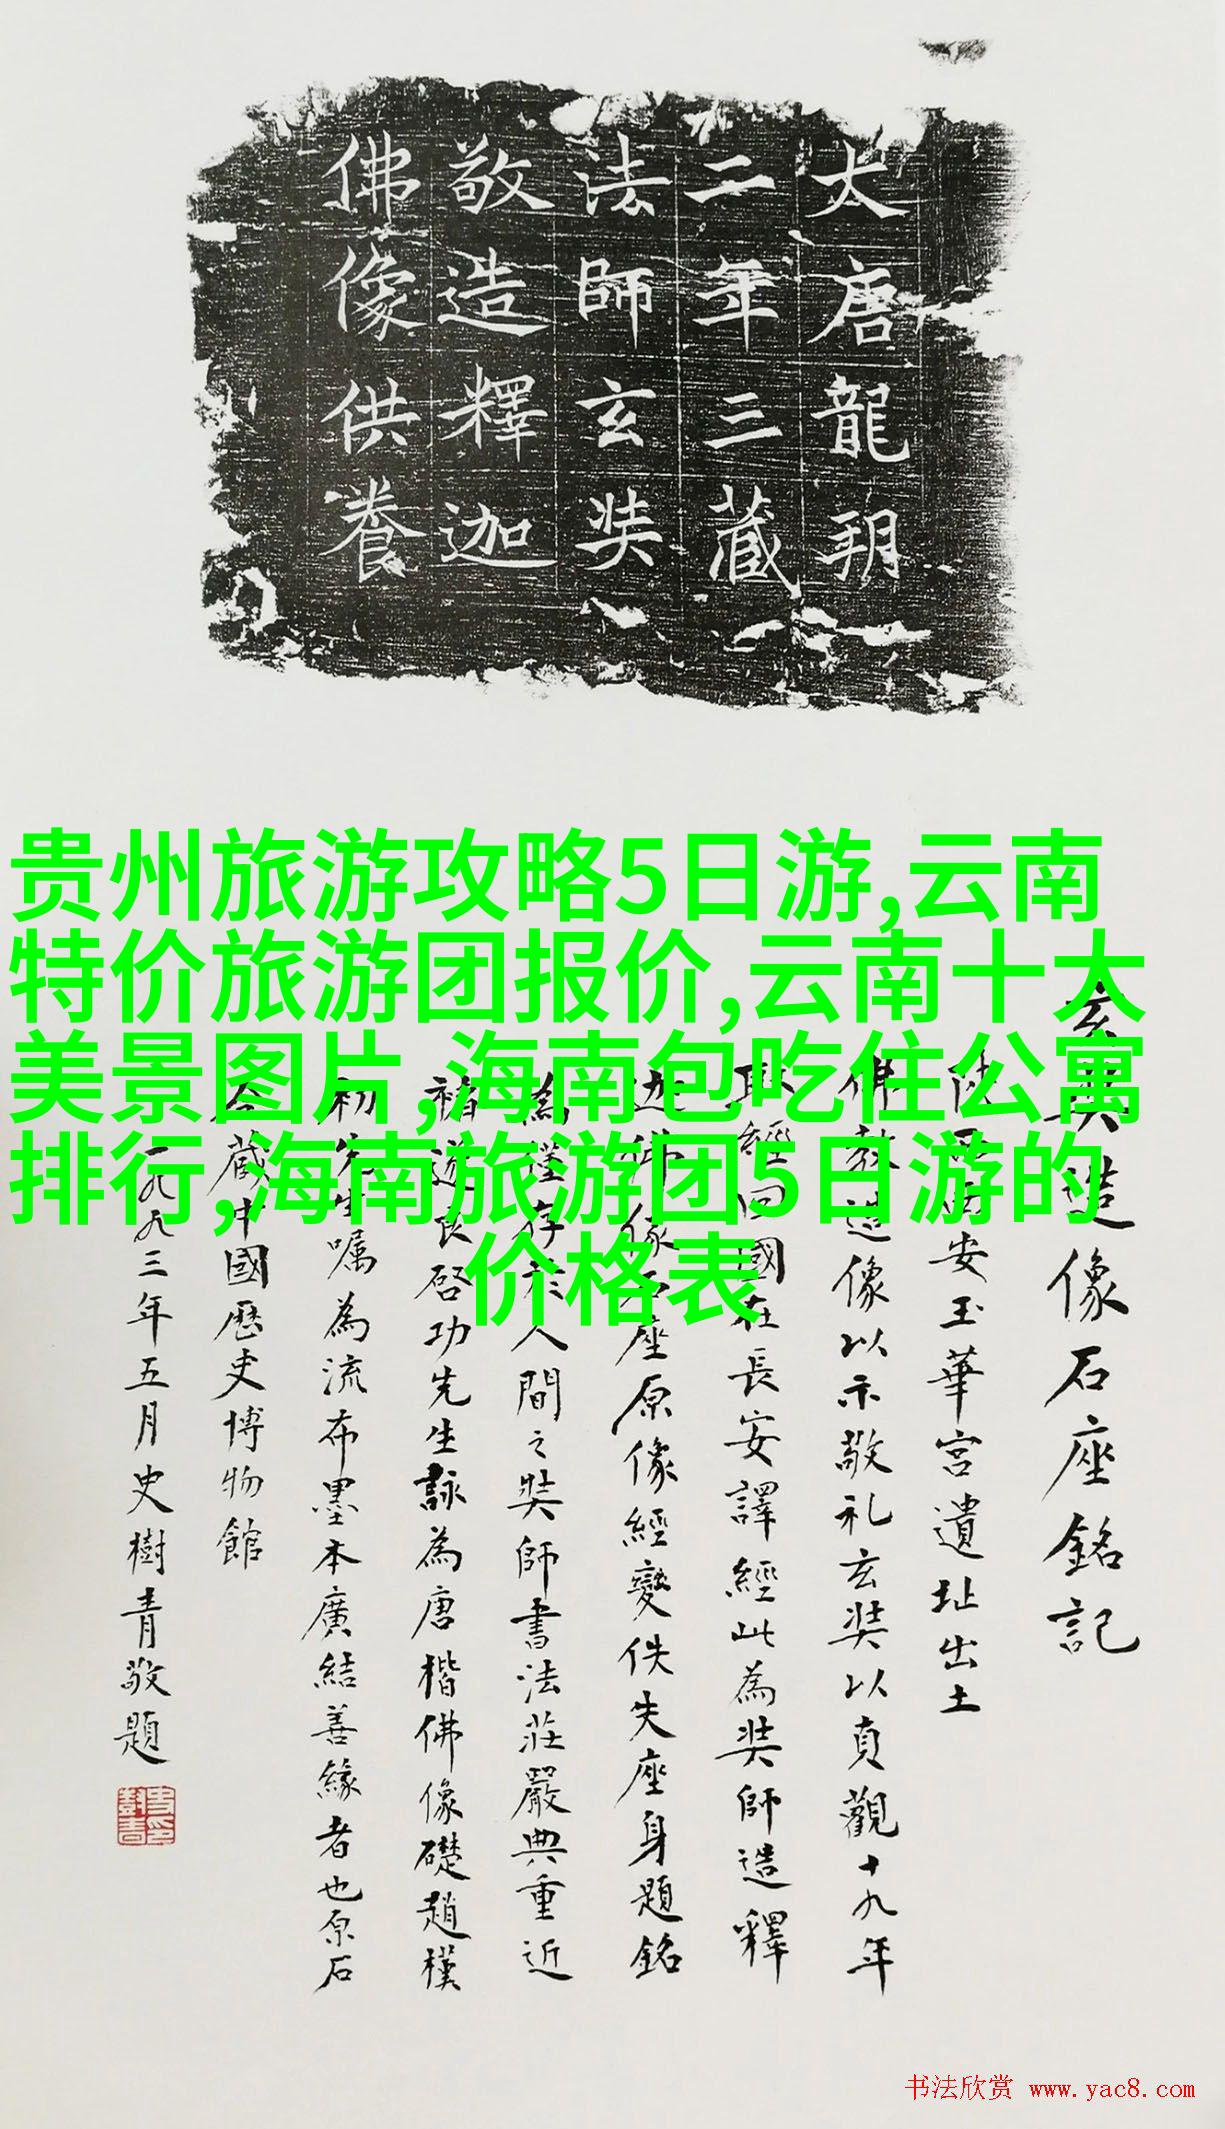 大唐龍朔
二年三藏
法師玄奘
敬造釋迦
佛像供養
贵州旅游攻略5日游,云南
特价旅游团报价,云南十大
美景图片,海南包吃住公寓
排行,海南旅游团5日游的
价格表
玄奘造像石座銘記
陝西西安玉華宮遺址出土
佛教造像以示敬礼玄奘以貞觀十九年
取經回國在長安譯經此為奘師造釋
迦佛像石座原像經變佚失座身題銘
為僅存於人間之奘師書法莊嚴典重近
褚遂良启功先生詠為唐楷佛像礎趙樸
初先生嘱為流布墨本廣結善緣者也原石
今藏中國歷史博物館
一九九三年五月史樹青敬題
书法欣赏 www.yac8.com